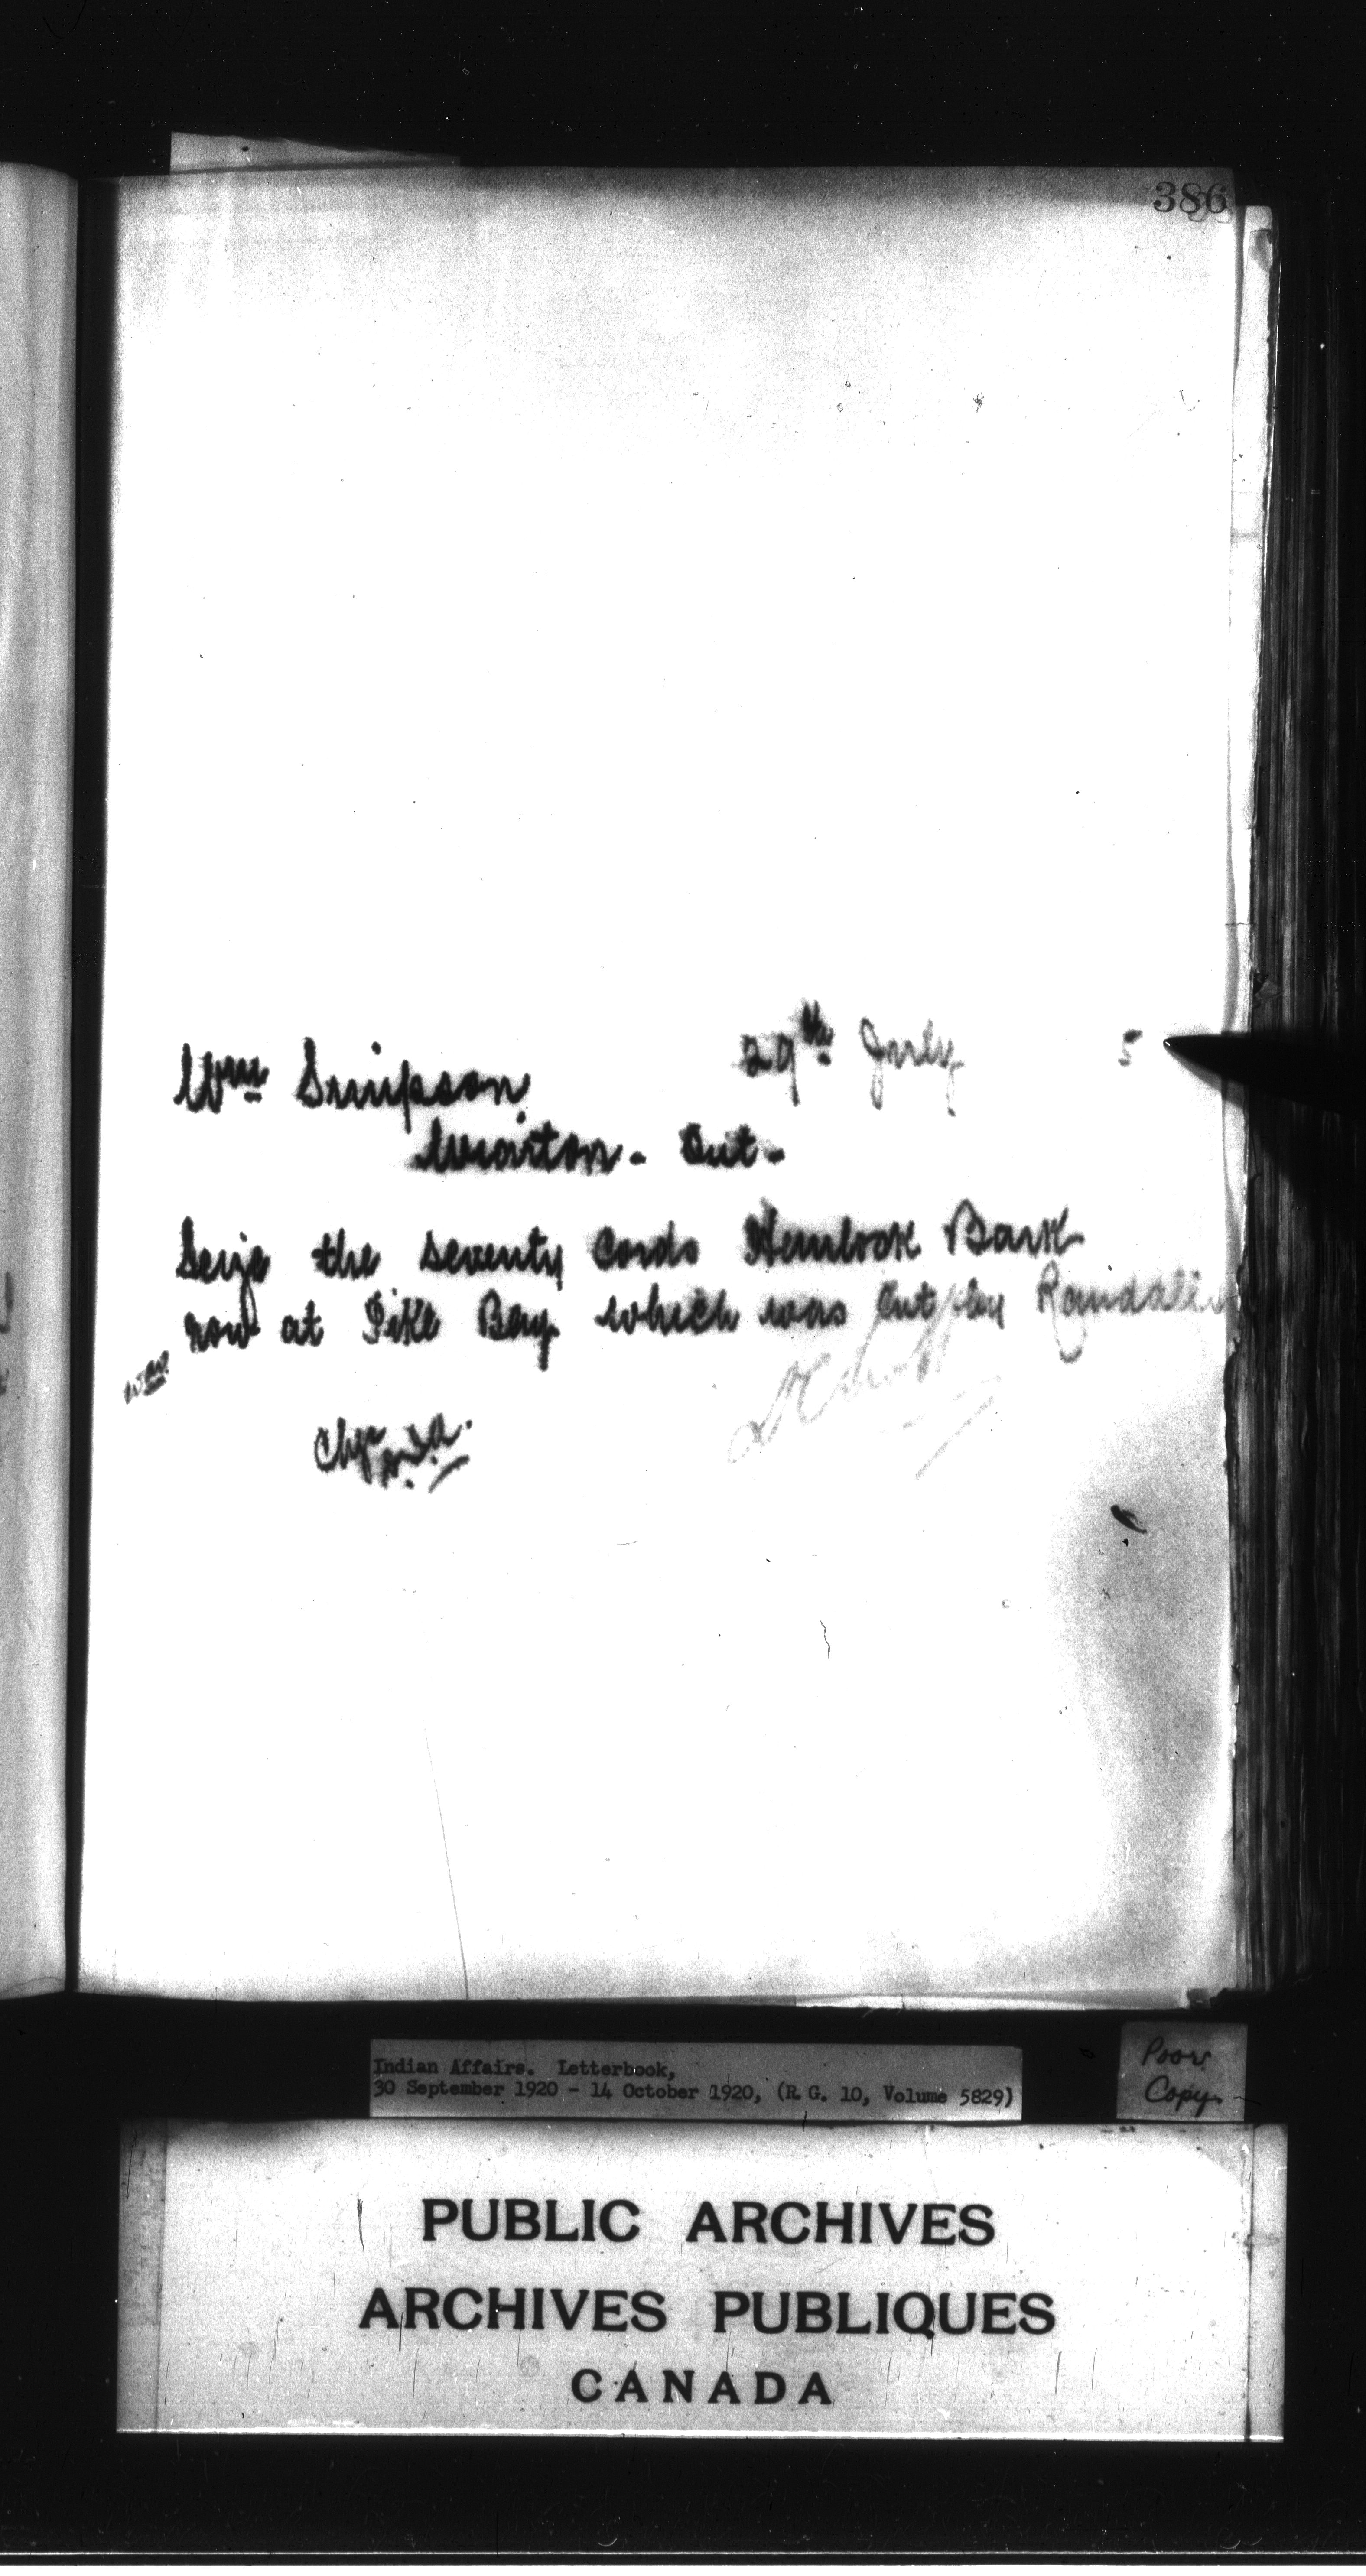 386
29th July 5
Wm Simpson
Wiarton - Ont -
Seize the seventy cords Hemlock Bark
now at Pike Bay which was cut by Randall
Chge D.I.A.
Indian Affairs. Letterbook,
30 September 1920 - 14 October 1920, (R.G. 10, Volume 5829)
Poor
Copy
PUBLIC ARCHIVES
ARCHIVES PUBLIQUES
CANADA